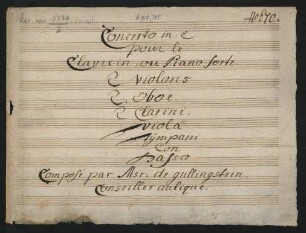 Concerto in C
pour le
Clavecin ou Piano forte
2. Violons
2. Oboe
2. Clarini
Viola
Tympani
Con
Basso
Composé par Msr. de gullingstein
Conseiller aulique.